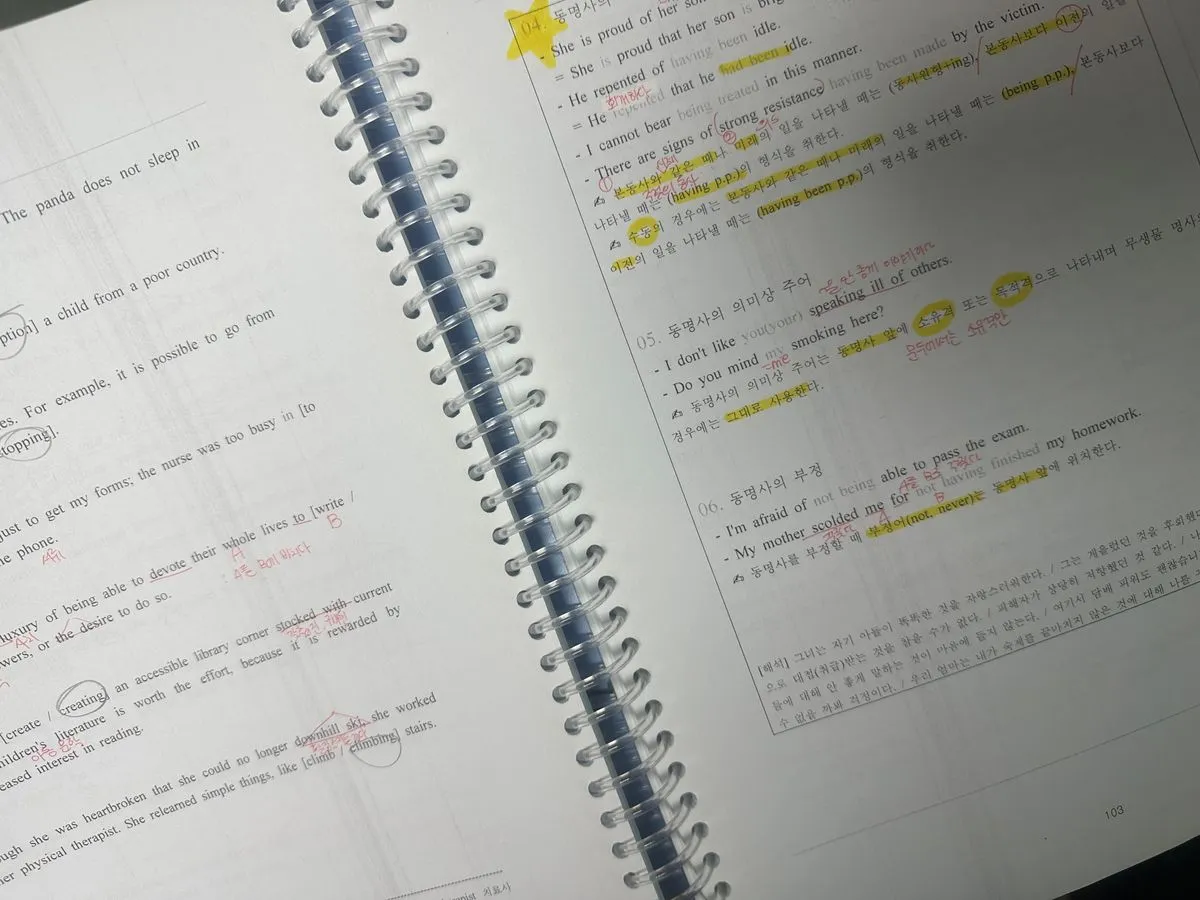 The panda does not sleep in
ption] a child from a poor country.
es. For example, it is possible to go from
topping].
ust to get my forms; the nurse was too busy in [to
e phone.
luxury of being able to devote their whole lives to [write /
A
B
: A를 B에 바치다
wers, or the desire to do so.
[create / creating] an accessible library corner stocked with current
hildren's literature is worth the effort, because it is rewarded by
eased interest in reading.
ugh she was heartbroken that she could no longer downhill ski, she worked
her physical therapist. She relearned simple things, like [climb / climbing] stairs.
치료사
04. 동명사의
- She is proud of her son
= She is proud that her son is
- He repented of having been idle.
후회하다
= He repented that he had been idle.
- I cannot bear being treated in this manner.
- There are signs of (strong resistance) having been made by the victim.
① 본동사와 같은 때나 ② 미래의 일을 나타낼 때는 (동사원형+ing), 본동사보다 이전의 일을
나타낼 때는 (having p.p.)의 형식을 취한다.
수동의 경우에는 본동사와 같은 때나 미래의 일을 나타낼 때는 (being p.p.), 본동사보다
이전의 일을 나타낼 때는 (having been p.p.)의 형식을 취한다.
05. 동명사의 의미상 주어
- I don't like you(your) speaking ill of others.
- Do you mind my smoking here?
=me
동명사의 의미상 주어는 동명사 앞에 소유격 또는 목적격으로 나타내며 무생물 명사
문두에서는 소유격만
경우에는 그대로 사용한다.
06. 동명사의 부정
- I'm afraid of not being able to pass the exam.
- My mother scolded me for not having finished my homework.
A
B
동명사를 부정할 때 부정어(not, never)는 동명사 앞에 위치한다.
[해석] 그녀는 자기 아들이 똑똑한 것을 자랑스러워한다. / 그는 게을렀던 것을 후회했다
으로 대접(취급)받는 것을 참을 수가 없다. / 피해자가 상당히 저항했던 것 같다. / 나
들에 대해 안 좋게 말하는 것이 마음에 들지 않는다. / 여기서 담배 피워도 괜찮습니
수 없을 까봐 걱정이다. / 우리 엄마는 내가 숙제를 끝마치지 않은 것에 대해 나를
103